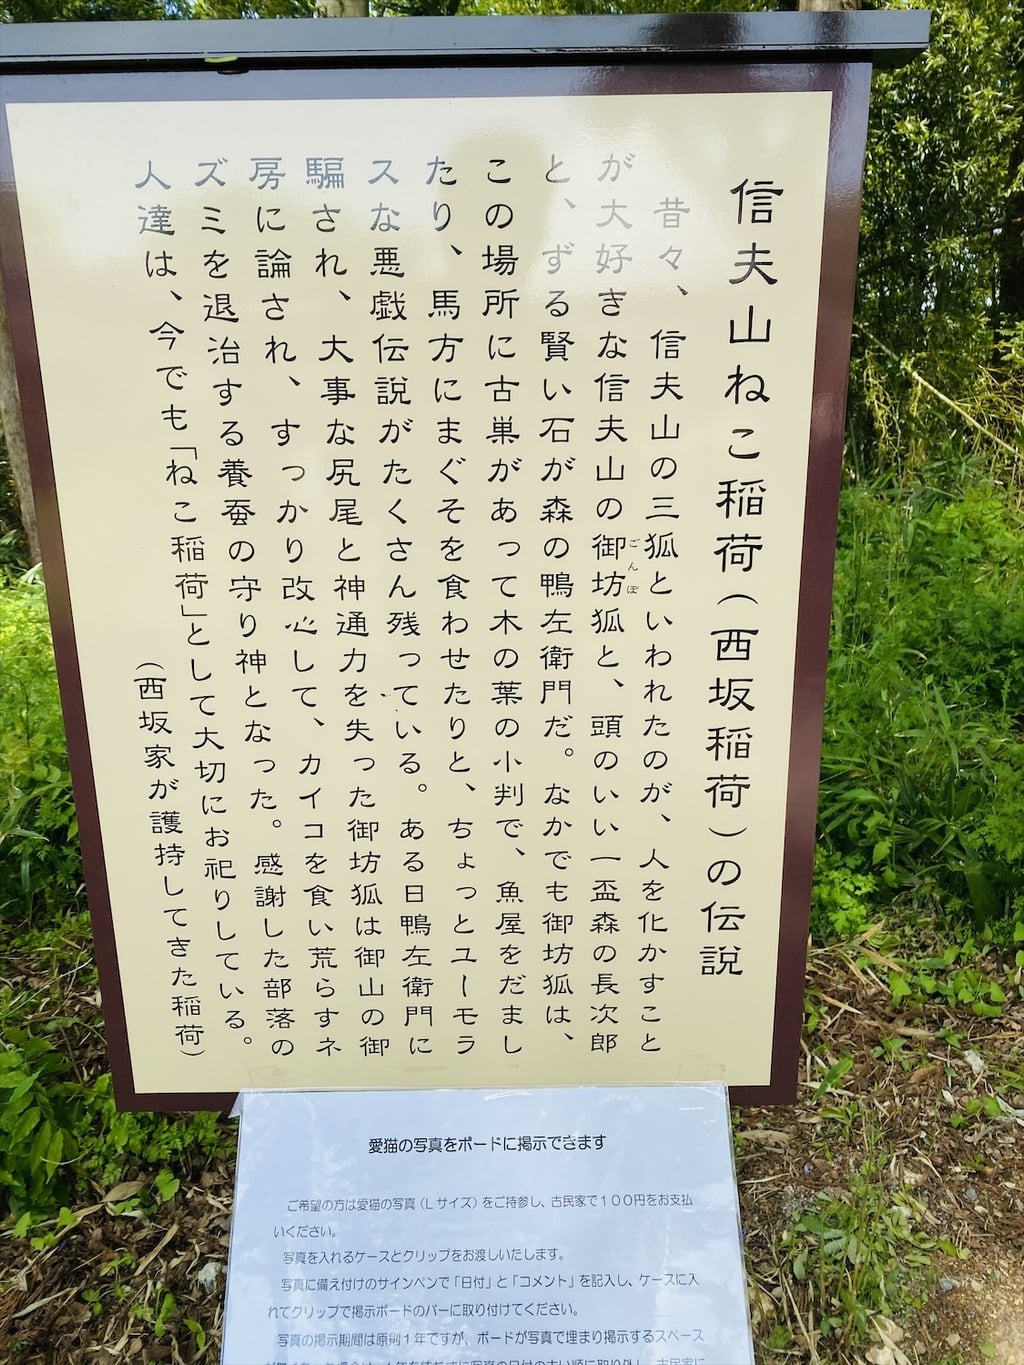 信夫山ねこ稲荷(西坂稲荷)の伝説
昔々、信夫山の三狐といわれたのが、人を化かすこと
が大好きな信夫山の御坊狐と、頭のいい一盃森の長次郎
ごんぼ
と、ずる賢い石が森の鴨左衛門だ。なかでも御坊狐は、
この場所に古巣があって木の葉の小判で、魚屋をだまし
たり、馬方にまぐそを食わせたりと、ちょっとユーモラ
スな悪戯伝説がたくさん残っている。ある日鴨左衛門に
騙され、大事な尻尾と神通力を失った御坊狐は御山の御
房に論され、すっかり改心して、カイコを食い荒らすネ
ズミを退治する養蚕の守り神となった。感謝した部落の
人達は、今でも「ねこ稲荷」として大切にお祀りしている。
(西坂家が護持してきた稲荷)
愛猫の写真をボードに掲示できます
ご希望の方は愛猫の写真(Lサイズ)をご持参し、古民家で100円をお支払
いください。
写真を入れるケースとクリップをお渡しいたします。
写真に備え付けのサインペンで「日付」と「コメント」を記入し、ケースに入
れてクリップで掲示ボードのバーに取り付けてください。
写真の掲示期間は原則1年ですが、ボードが写真で埋まり掲示するスペース